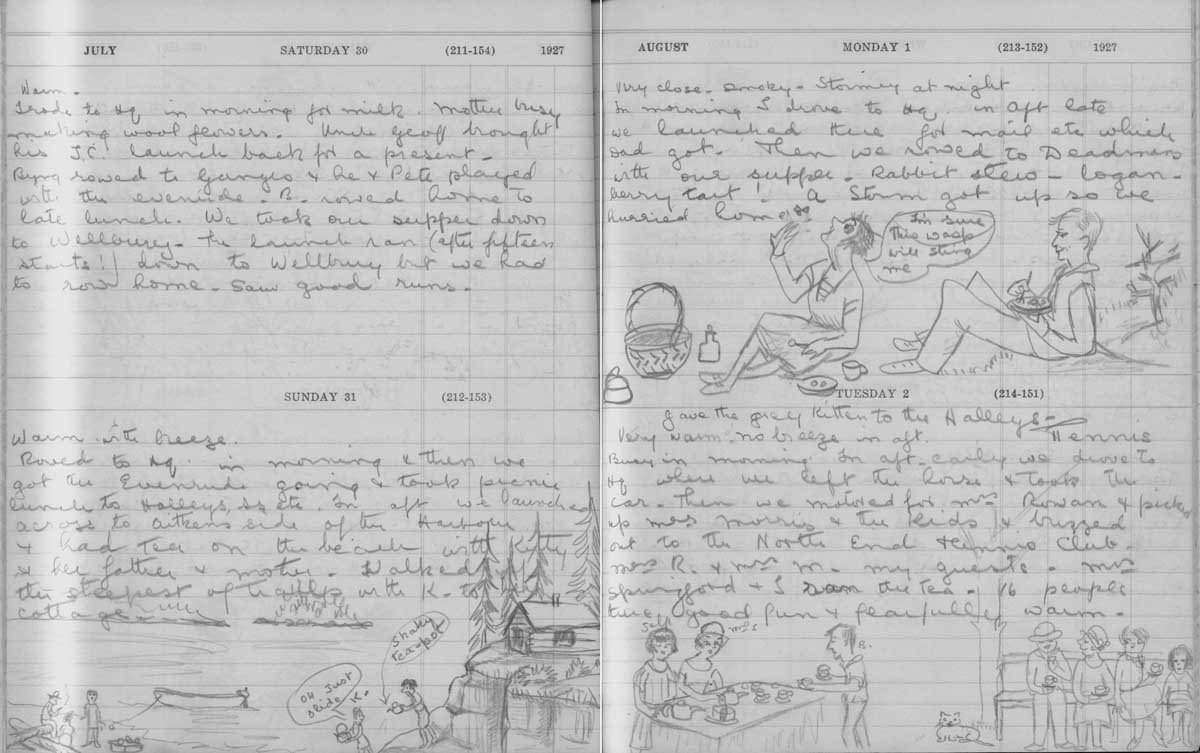 JULY SATURDAY 30 (211-154) 1927
Warm.
to Hq in morning for milk. Mother busy
making wool flowers. Uncle Geoff brought
his J.C. launch back for a present.
rowed to Ganges & he & Pete played
with the evenrude. B. rowed home to
late lunch. We took our supper down
to Wellbury. The launch ran (after fifteen
starts!) down to Wellbury but we had
to row home. Saw good runs.
SUNDAY 31 (212-153)
Warm with breeze.
Rowed to Hq in morning & then we
got the Evenrude going & took picnic
lunch to Halleys, etc. In aft we launched
across to Aitkens side of the Harbour
& had tea on the beach with Kitty
& her father & mother. Walked
the steepest of with K. to
cottage
Shaky
teapot
Oh just
slide K.
AUGUST MONDAY 1 (213-152) 1927
Very close. Smoky. Stormy at night
In morning I drove to Hq. in aft late
we launched there for mail etc which
Dad got. Then we rowed to Deadmans
with our supper. Rabbit stew - logan-
berry tart! A Storm got up so we
hurried home.
I'm sure
this wasp
will sting
me
TUESDAY 2 (214-151)
Gave the grey kitten to the Halleys
Very warm no breeze in aft. Tennis
Busy in morning. In aft early we drove to
Hq where we left the horse & took the
car. Then we motored for Mrs Rowan & picked
up Mrs Morris & the kids & buzzed
out to the North End Tennis Club.
Mrs R. & Mrs M. my guests. Mrs
Springford & I ran the tea. 16 people
there good fun & fearfully warm.
Self Mrs S B.